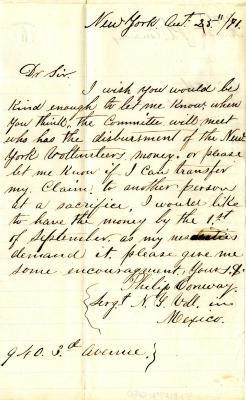 New York Aut. 25th /71.
Dr Sir.
I wish you would be
kind enough to let me know, when
you think, the Committe will meet
who has the disbursment of the New
York Vollintiers, money, or please
let me know if I can transfer
my. Claim. to another person
at a sacrifice, I would like
to have the money by the 1.st
of September. as my
demand it. please give me
some encouragment. Yours &.
Philip Conway.
Sergt N. Y. Vol. in
Mexico.
940. 3.rd Avenue.